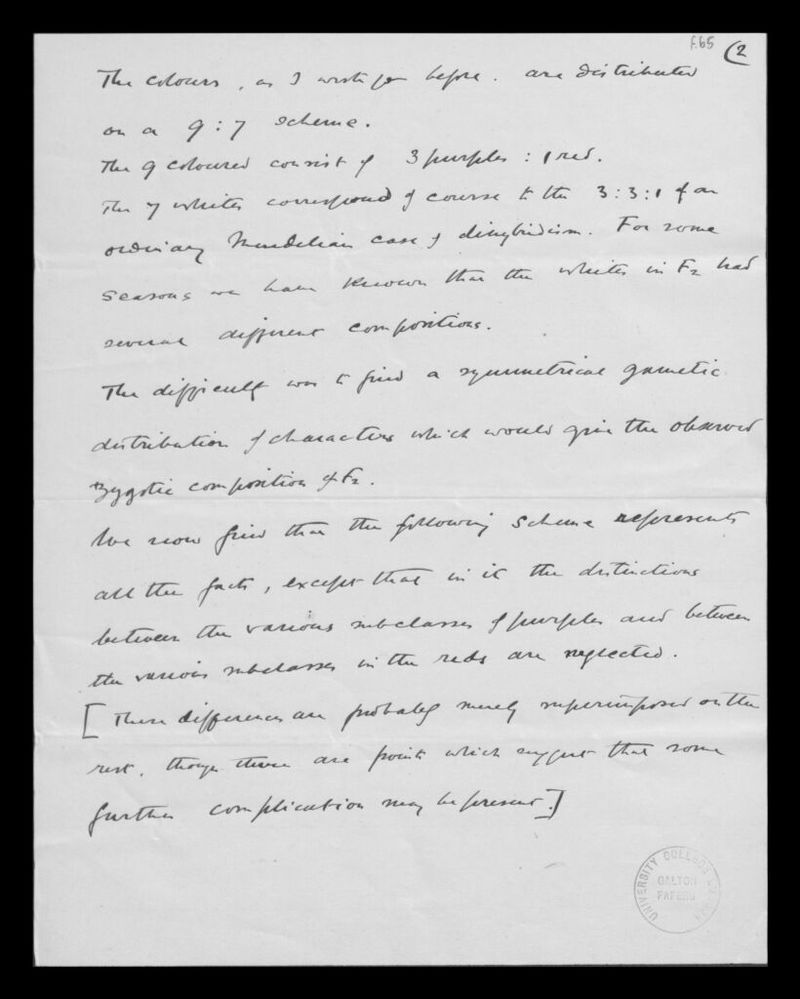 f.65 (2
The colours, as I wrote you before. are distributed
on a 9:7 scheme.
The 9 coloured consist of 3 purples : 1 red.
The 7 whites correspond of course to the 3:3:1 of an
ordinary Mendelian case of dihybridism. For some
seasons we have known that the whites in F2 had
several different compositions.
The difficulty was to find a symmetrical gametic
distribution of characters which would give the observed
zygotic composition of F2.
We now find that the following scheme represents
all the facts, except that in it the distinctions
between the various subclasses of purples and between
the various subclasses in the reds are neglected.
[These differences are probably merely superimposed on the
rest, though there are points which suggest that some
further complication may be present.]
UNIVERSITY COLLEGE LONDON
GALTON
PAPERS